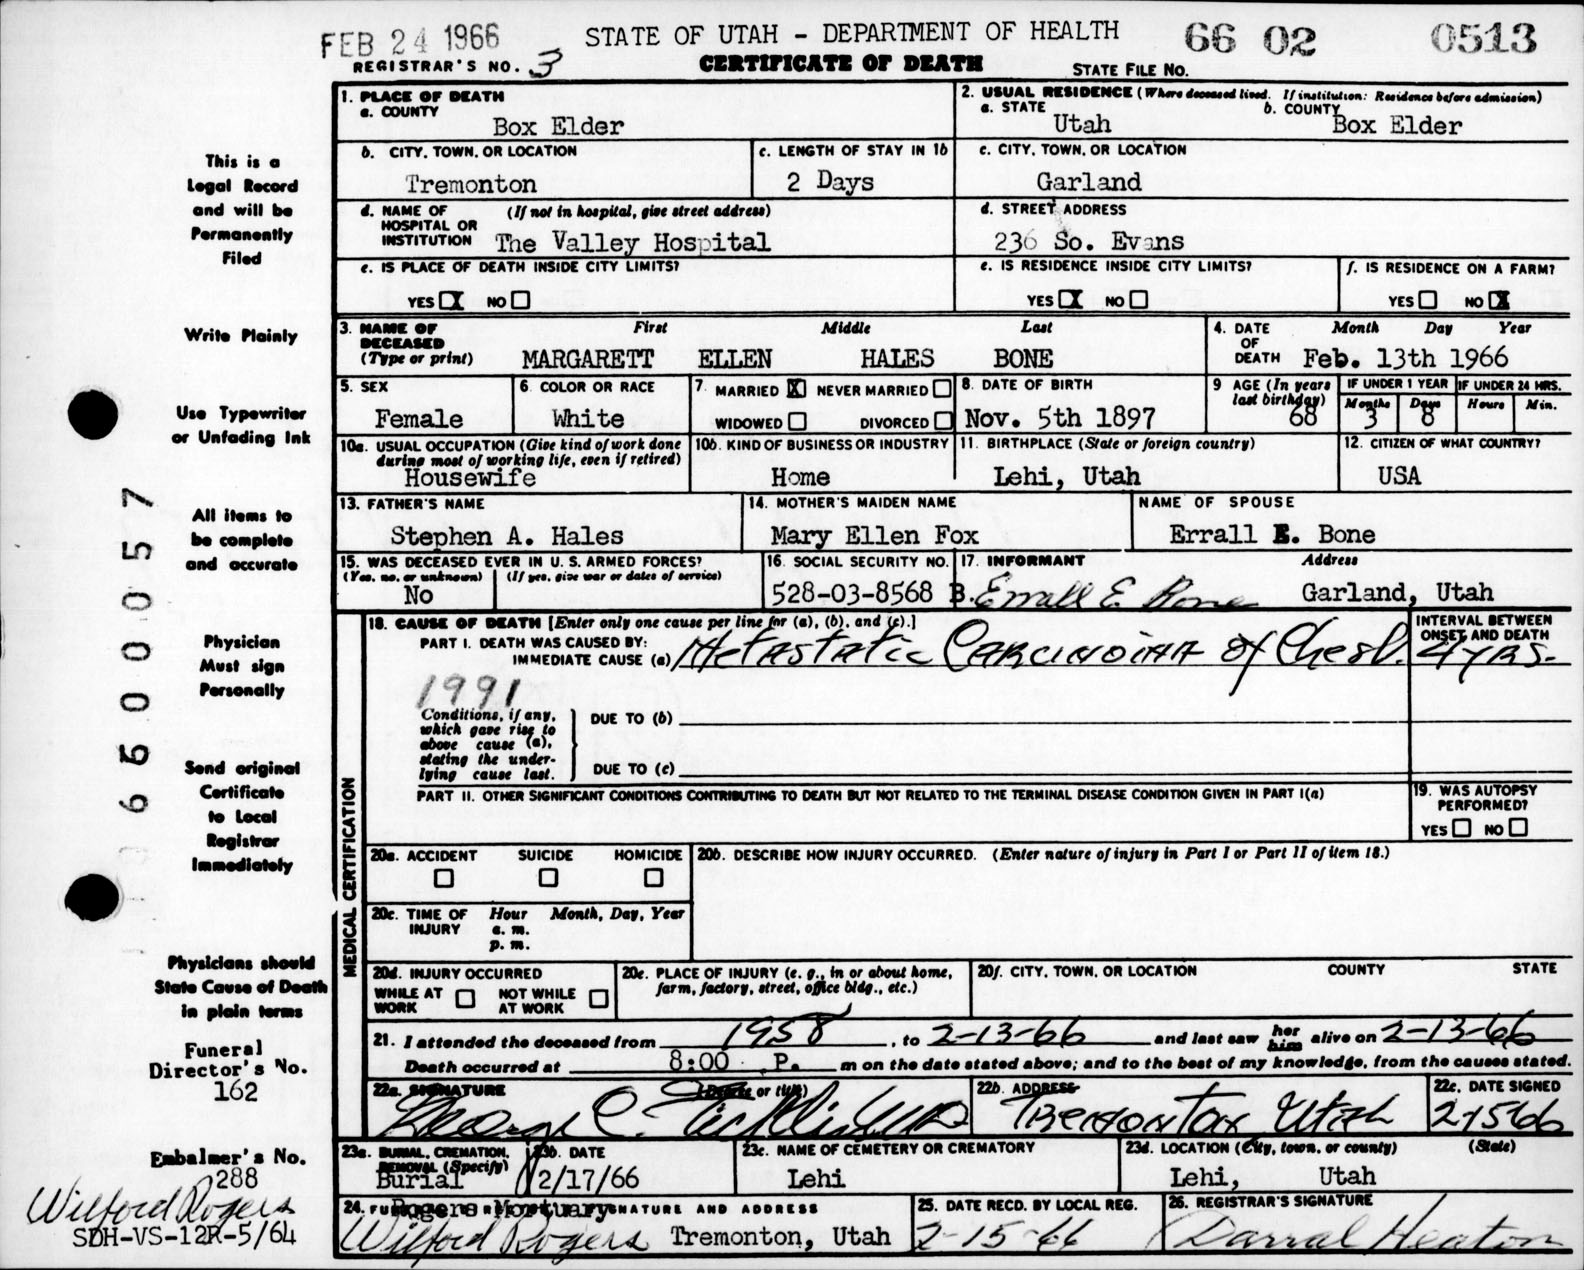 FEB 24 1966
STATE OF UTAH - DEPARTMENT OF HEALTH
66 02 0513
REGISTRAR'S NO. 3
CERTIFICATE OF DEATH
STATE FILE NO.
1. PLACE OF DEATH
a. COUNTY
Box Elder
2. USUAL RESIDENCE (Where deceased lived. If institution: Residence before admission)
a. STATE
Utah
b. COUNTY
Box Elder
b. CITY, TOWN, OR LOCATION
Tremonton
c. LENGTH OF STAY IN 1b
2 Days
c. CITY, TOWN, OR LOCATION
Garland
d. NAME OF HOSPITAL OR INSTITUTION (If not in hospital, give street address)
The Valley Hospital
d. STREET ADDRESS
236 So. Evans
e. IS PLACE OF DEATH INSIDE CITY LIMITS?
YES X NO
e. IS RESIDENCE INSIDE CITY LIMITS?
YES X NO
f. IS RESIDENCE ON A FARM?
YES NO X
3. NAME OF DECEASED (Type or print)
First Middle Last
MARGARETT ELLEN HALES BONE
4. DATE OF DEATH
Month Day Year
Feb. 13th 1966
5. SEX
Female
6. COLOR OR RACE
White
7. MARRIED X NEVER MARRIED
WIDOWED DIVORCED
8. DATE OF BIRTH
Nov. 5th 1897
9 AGE (In years last birthday)
68
IF UNDER 1 YEAR
Months Days
3 8
IF UNDER 24 HRS.
Hours Min.
10a. USUAL OCCUPATION (Give kind of work done during most of working life, even if retired)
Housewife
10b. KIND OF BUSINESS OR INDUSTRY
Home
11. BIRTHPLACE (State or foreign country)
Lehi, Utah
12. CITIZEN OF WHAT COUNTRY?
USA
13. FATHER'S NAME
Stephen A. Hales
14. MOTHER'S MAIDEN NAME
Mary Ellen Fox
NAME OF SPOUSE
Errall E. Bone
15. WAS DECEASED EVER IN U. S. ARMED FORCES?
(Yes, no, or unknown) (If yes, give war or dates of service)
No
16. SOCIAL SECURITY NO.
528-03-8568 B.
17. INFORMANT Address
Errall E. Bone Garland, Utah
MEDICAL CERTIFICATION
18. CAUSE OF DEATH [Enter only one cause per line for (a), (b), and (c).]
PART I. DEATH WAS CAUSED BY:
IMMEDIATE CAUSE (a) Metastatic Carcinoma of Chest.
INTERVAL BETWEEN ONSET AND DEATH
4 yrs.
1991
Conditions, if any, which gave rise to above cause (a), stating the underlying cause last.
DUE TO (b)
DUE TO (c)
PART II. OTHER SIGNIFICANT CONDITIONS CONTRIBUTING TO DEATH BUT NOT RELATED TO THE TERMINAL DISEASE CONDITION GIVEN IN PART I(a)
19. WAS AUTOPSY PERFORMED?
YES NO
20a. ACCIDENT SUICIDE HOMICIDE
20b. DESCRIBE HOW INJURY OCCURRED. (Enter nature of injury in Part I or Part II of item 18.)
20c. TIME OF INJURY Hour Month, Day, Year
a. m.
p. m.
20d. INJURY OCCURRED
WHILE AT WORK NOT WHILE AT WORK
20e. PLACE OF INJURY (e. g., in or about home, farm, factory, street, office bldg., etc.)
20f. CITY, TOWN, OR LOCATION COUNTY STATE
21. I attended the deceased from 1958, to 2-13-66 and last saw her him alive on 2-13-66
Death occurred at 8:00 P. m on the date stated above; and to the best of my knowledge, from the causes stated.
22a. SIGNATURE (Degree or title)
George C. MD
22b. ADDRESS
Tremonton Utah
22c. DATE SIGNED
2-15-66
23a. BURIAL, CREMATION, REMOVAL (Specify)
Burial
23b. DATE
2/17/66
23c. NAME OF CEMETERY OR CREMATORY
Lehi
23d. LOCATION (City, town, or county) (State)
Lehi, Utah
24. FUNERAL DIRECTOR'S SIGNATURE AND ADDRESS
Rogers Mortuary
Wilford Rogers Tremonton, Utah
25. DATE RECD. BY LOCAL REG.
2-15-66
26. REGISTRAR'S SIGNATURE
Darral Heaton
This is a
Legal Record
and will be
Permanently
Filed
Write Plainly
Use Typewriter
or Unfading Ink
All items to
be complete
and accurate
Physician
Must sign
Personally
Send original
Certificate
to Local
Registrar
Immediately
Physicians should
State Cause of Death
in plain terms
Funeral
Director's No.
162
Embalmer's No.
288
Wilford Rogers
SDH-VS-12R-5/64
66 00057